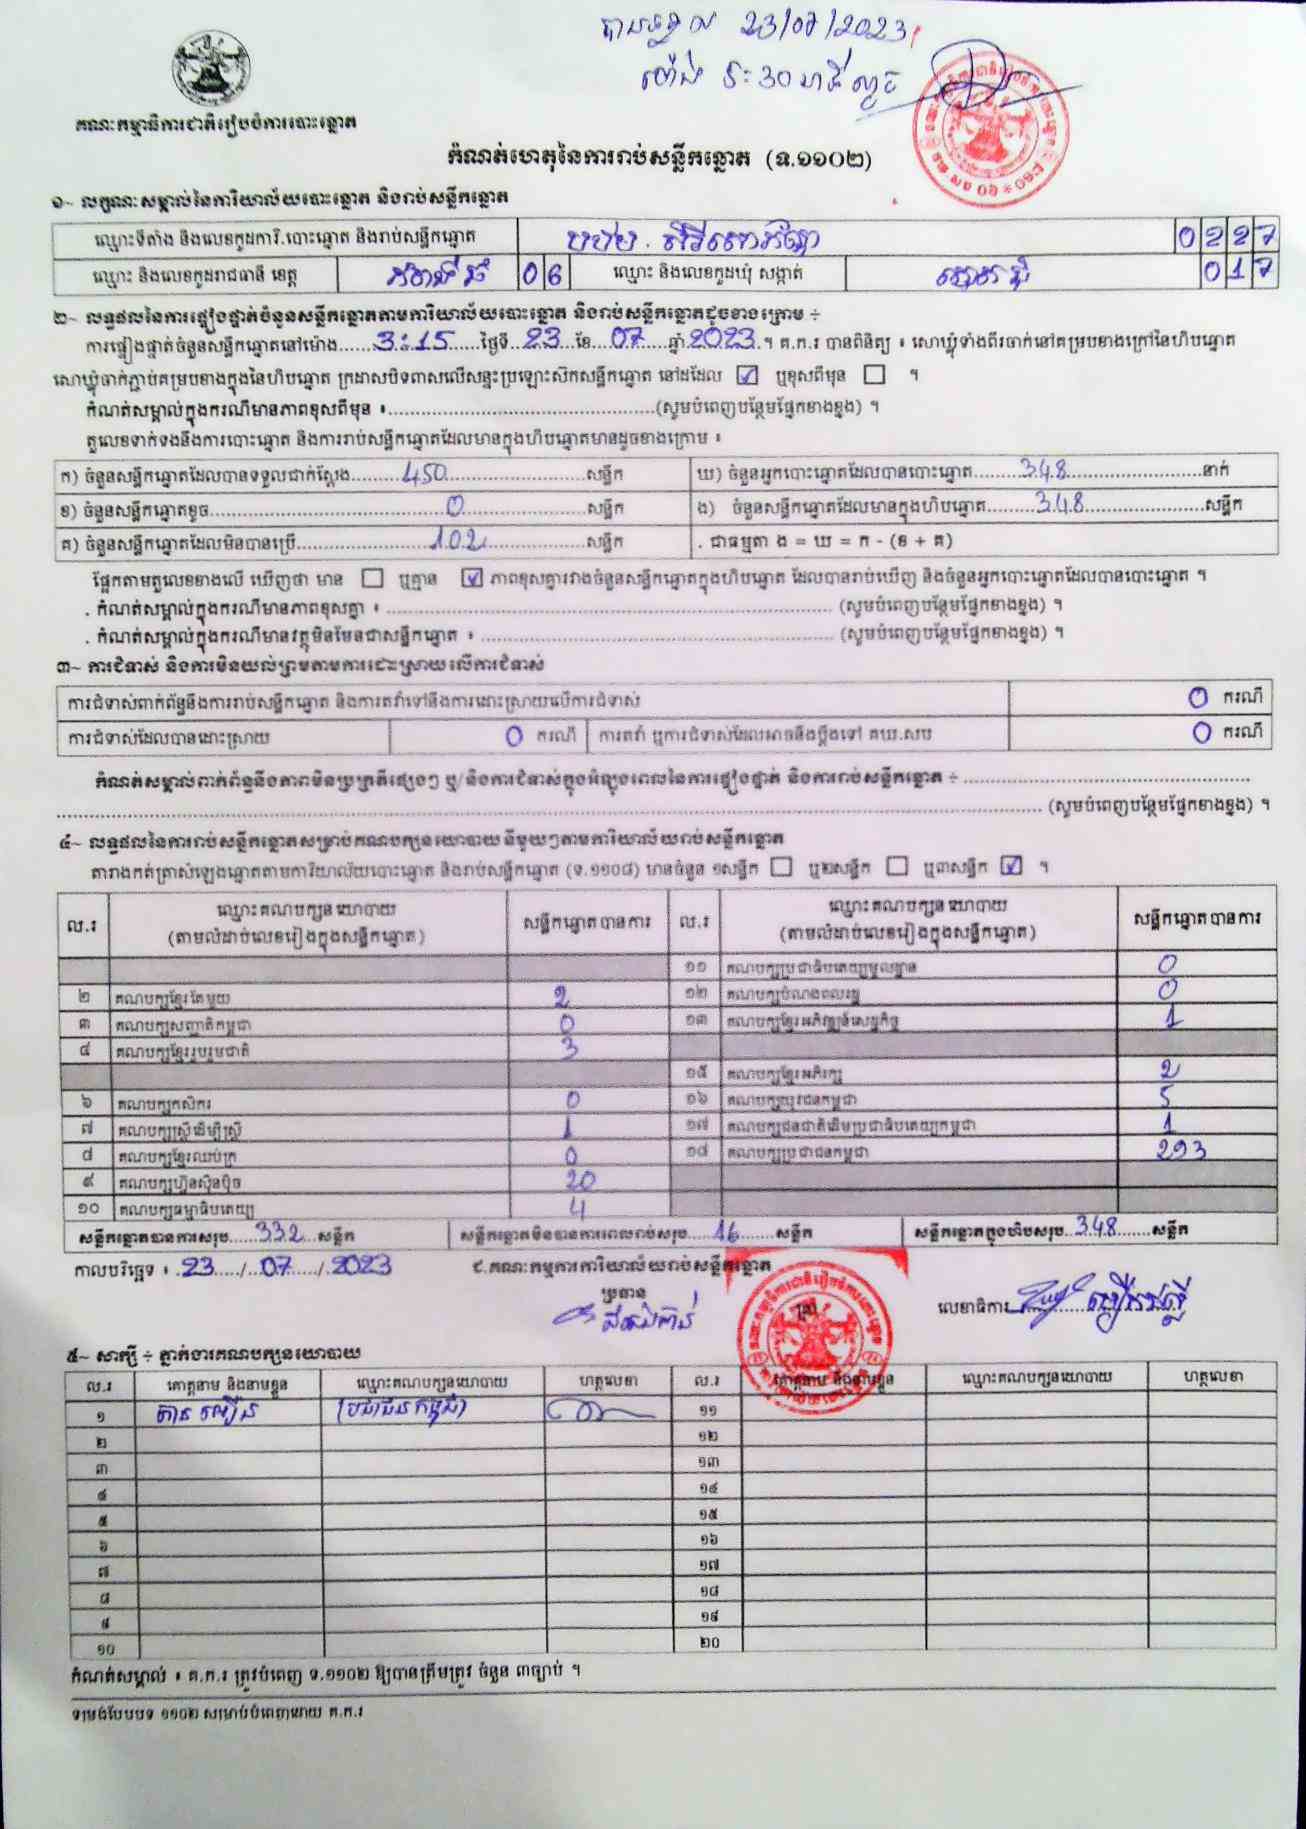 បានទទួល 23/07/2023
ម៉ោង 5:30 នាទី ល្ងាច
គណៈកម្មាធិការជាតិរៀបចំការបោះឆ្នោត
កំណត់ហេតុនៃការរាប់សន្លឹកឆ្នោត (ទ.១១០២)
១~ លក្ខណៈសម្គាល់នៃការិយាល័យបោះឆ្នោត និងរាប់សន្លឹកឆ្នោត
ឈ្មោះទីតាំង និងលេខកូដការិ.បោះឆ្នោត និងរាប់សន្លឹកឆ្នោត 0227
ឈ្មោះ និងលេខកូដរាជធានី ខេត្ត កំពង់ធំ 06 ឈ្មោះ និងលេខកូដឃុំ សង្កាត់ 017
២~ លទ្ធផលនៃការផ្ទៀងផ្ទាត់ចំនួនសន្លឹកឆ្នោតតាមការិយាល័យបោះឆ្នោត និងរាប់សន្លឹកឆ្នោតដូចខាងក្រោម ÷
ការផ្ទៀងផ្ទាត់ចំនួនសន្លឹកឆ្នោតនៅម៉ោង 3:15 ថ្ងៃទី 23 ខែ 07 ឆ្នាំ 2023 ។ គ.ក.រ បានពិនិត្យ ៖ សោឃ្លុំទាំងពីរចាក់នៅគម្របខាងក្រៅនៃហិបឆ្នោត
សោឃ្លុំចាក់ភ្ជាប់គម្របខាងក្នុងនៃហិបឆ្នោត ក្រដាសបិទពាសលើសន្ទះប្រឡោះសិកសន្លឹកឆ្នោត នៅដដែល ☑ ឬខុសពីមុន ☐ ។
កំណត់សម្គាល់ក្នុងករណីមានភាពខុសពីមុន ៖ (សូមបំពេញបន្ថែមផ្នែកខាងខ្នង) ។
តួលេខទាក់ទងនឹងការបោះឆ្នោត និងការរាប់សន្លឹកឆ្នោតដែលមានក្នុងហិបឆ្នោតមានដូចខាងក្រោម ៖
ក) ចំនួនសន្លឹកឆ្នោតដែលបានទទួលជាក់ស្តែង 450 សន្លឹក ឃ) ចំនួនអ្នកបោះឆ្នោតដែលបានបោះឆ្នោត 348 នាក់
ខ) ចំនួនសន្លឹកឆ្នោតខូច 0 សន្លឹក ង) ចំនួនសន្លឹកឆ្នោតដែលមានក្នុងហិបឆ្នោត 348 សន្លឹក
គ) ចំនួនសន្លឹកឆ្នោតដែលមិនបានប្រើ 102 សន្លឹក . ជាធម្មតា ង = ឃ = ក - (ខ + គ)
ផ្អែកតាមតួលេខខាងលើ ឃើញថា មាន ☐ ឬគ្មាន ☑ ភាពខុសគ្នារវាងចំនួនសន្លឹកឆ្នោតក្នុងហិបឆ្នោត ដែលបានរាប់ឃើញ និងចំនួនអ្នកបោះឆ្នោតដែលបានបោះឆ្នោត ។
. កំណត់សម្គាល់ក្នុងករណីមានភាពខុសគ្នា ៖ (សូមបំពេញបន្ថែមផ្នែកខាងខ្នង) ។
. កំណត់សម្គាល់ក្នុងករណីមានវត្ថុមិនមែនជាសន្លឹកឆ្នោត ៖ (សូមបំពេញបន្ថែមផ្នែកខាងខ្នង) ។
៣~ ការជំទាស់ និងការមិនយល់ព្រមតាមការដោះស្រាយលើការជំទាស់
ការជំទាស់ពាក់ព័ន្ធនឹងការរាប់សន្លឹកឆ្នោត និងការតវ៉ាទៅនឹងការដោះស្រាយលើការជំទាស់ 0 ករណី
ការជំទាស់ដែលបានដោះស្រាយ 0 ករណី ការតវ៉ា ឬការជំទាស់ដែលអាចនឹងប្តឹងទៅ គឃ.សប 0 ករណី
កំណត់សម្គាល់ពាក់ព័ន្ធនឹងភាពមិនប្រក្រតីផ្សេងៗ ឬ/និងការជំទាស់ក្នុងអំឡុងពេលនៃការផ្ទៀងផ្ទាត់ និងការរាប់សន្លឹកឆ្នោត ÷
(សូមបំពេញបន្ថែមផ្នែកខាងខ្នង) ។
៤~ លទ្ធផលនៃការរាប់សន្លឹកឆ្នោតសម្រាប់គណបក្សនយោបាយ នីមួយៗតាមការិយាល័យរាប់សន្លឹកឆ្នោត
តារាងកត់ត្រាសំឡេងឆ្នោតតាមការិយាល័យបោះឆ្នោត និងរាប់សន្លឹកឆ្នោត (ទ.១១០៨) មានចំនួន ១សន្លឹក ☐ ឬ២សន្លឹក ☐ ឬ៣សន្លឹក ☑ ។
ល.រ ឈ្មោះគណបក្សនយោបាយ (តាមលំដាប់លេខរៀងក្នុងសន្លឹកឆ្នោត) សន្លឹកឆ្នោតបានការ ល.រ ឈ្មោះគណបក្សនយោបាយ (តាមលំដាប់លេខរៀងក្នុងសន្លឹកឆ្នោត) សន្លឹកឆ្នោតបានការ
១១ គណបក្សប្រជាធិបតេយ្យមូលដ្ឋាន 0
២ គណបក្សខ្មែរតែមួយ 2 ១២ គណបក្សបំណងពលរដ្ឋ 0
៣ គណបក្សសញ្ជាតិកម្ពុជា 0 ១៣ គណបក្សខ្មែរអភិវឌ្ឍន៍សេដ្ឋកិច្ច 1
៤ គណបក្សខ្មែររួបរួមជាតិ 3
១៥ គណបក្សខ្មែរអភិរក្ស 2
៦ គណបក្សកសិករ 0 ១៦ គណបក្សយុវជនកម្ពុជា 5
៧ គណបក្សស្ត្រីដើម្បីស្ត្រី 1 ១៧ គណបក្សជនជាតិដើមប្រជាធិបតេយ្យកម្ពុជា 1
៨ គណបក្សខ្មែរឈប់ក្រ 0 ១៨ គណបក្សប្រជាជនកម្ពុជា 293
៩ គណបក្សហ៊្វុនស៊ិនប៉ិច 20
១០ គណបក្សធម្មាធិបតេយ្យ 4
សន្លឹកឆ្នោតបានការសរុប 332 សន្លឹក សន្លឹកឆ្នោតមិនបានការពេលរាប់សរុប 16 សន្លឹក សន្លឹកឆ្នោតក្នុងហិបសរុប 348 សន្លឹក
កាលបរិច្ឆេទ ៖ 23 / 07 / 2023 ៩.គណៈកម្មការការិយាល័យរាប់សន្លឹកឆ្នោត
ប្រធាន លេខាធិការ
៥~ សាក្សី ÷ ភ្នាក់ងារគណបក្សនយោបាយ
ល.រ គោត្តនាម និងនាមខ្លួន ឈ្មោះគណបក្សនយោបាយ ហត្ថលេខា ល.រ គោត្តនាម និងនាមខ្លួន ឈ្មោះគណបក្សនយោបាយ ហត្ថលេខា
១ ប្រជាជនកម្ពុជា ១១
២ ១២
៣ ១៣
៤ ១៤
៥ ១៥
៦ ១៦
៧ ១៧
៨ ១៨
៩ ១៩
១០ ២០
កំណត់សម្គាល់ ៖ គ.ក.រ ត្រូវបំពេញ ទ.១១០២ ឱ្យបានត្រឹមត្រូវ ចំនួន ៣ច្បាប់ ។
ទម្រង់បែបបទ ១១០២ សម្រាប់បំពេញដោយ គ.ក.រ